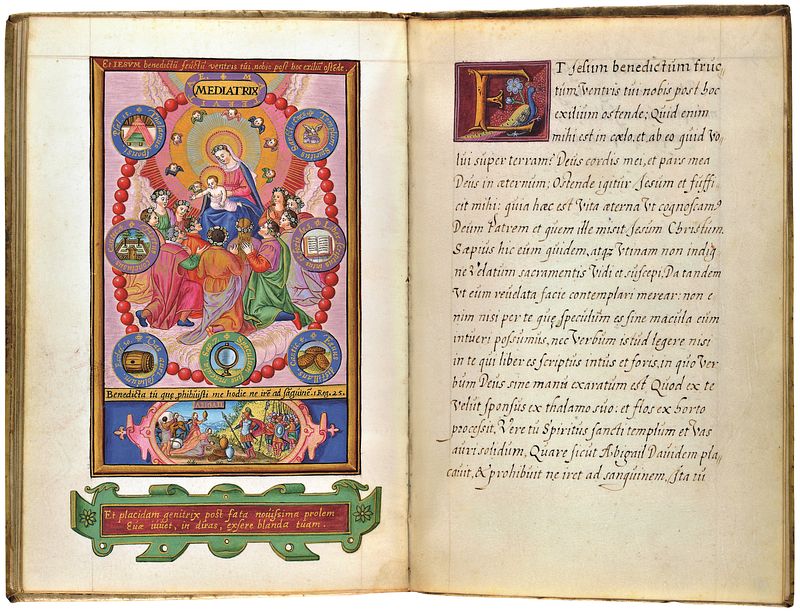 Et IESVM benedictū fructū ventris tūi, nobis post hoc exiliū ostēde.
MEDIATRIX
Benedicta tū quę phibūisti me hodie ne irē ad sāguinē. 1 Reg. 25.
ABIGAIL
Et placidam genitrix post fata nouissima prolem
Euæ uiuet, in diras, exsere blanda tuam.
ET Jesum benedictūm frūc
tūm ventris tūi nobis pòst hoc
exilium ostende; Qūid enim
mihi est in cœlo, et ab eo qūid vo
lūi sūper terram? Deūs cordis mei, et pars mea
Deūs in æternūm; Ostende igitūr Jesum et sūffi
cit mihi: qūia hæc est vita æterna vt cognoscam?
Deūm Patrem et qūem ille misit Jesum Christūm.
Sæpiūs hic eūm qūidem, atqz vtinam non indig
nè velatūm sacramentis vidi et sūscepi, Da tandem
vt eūm reūelata facie contemplari merear: non e
nim nisi per te qūę specūlūm es sine macūla eūm
intūeri possūmūs, nec Verbūm istūd legere nisi
in te qūi liber es scriptūs intūs et foris, in qūo Ver
būm Deūs sine manū exaratūm est Qūod ex te
velūt sponsūs ex thalamo sūo: et flos ex horto
processit, Vere tū Spiritūs sancti templūm et vas
aūri solidūm, Qūare sicūt Abigail Daūidem pla
caūit, & prohibūit ne iret ad sangūinem, Ita tū